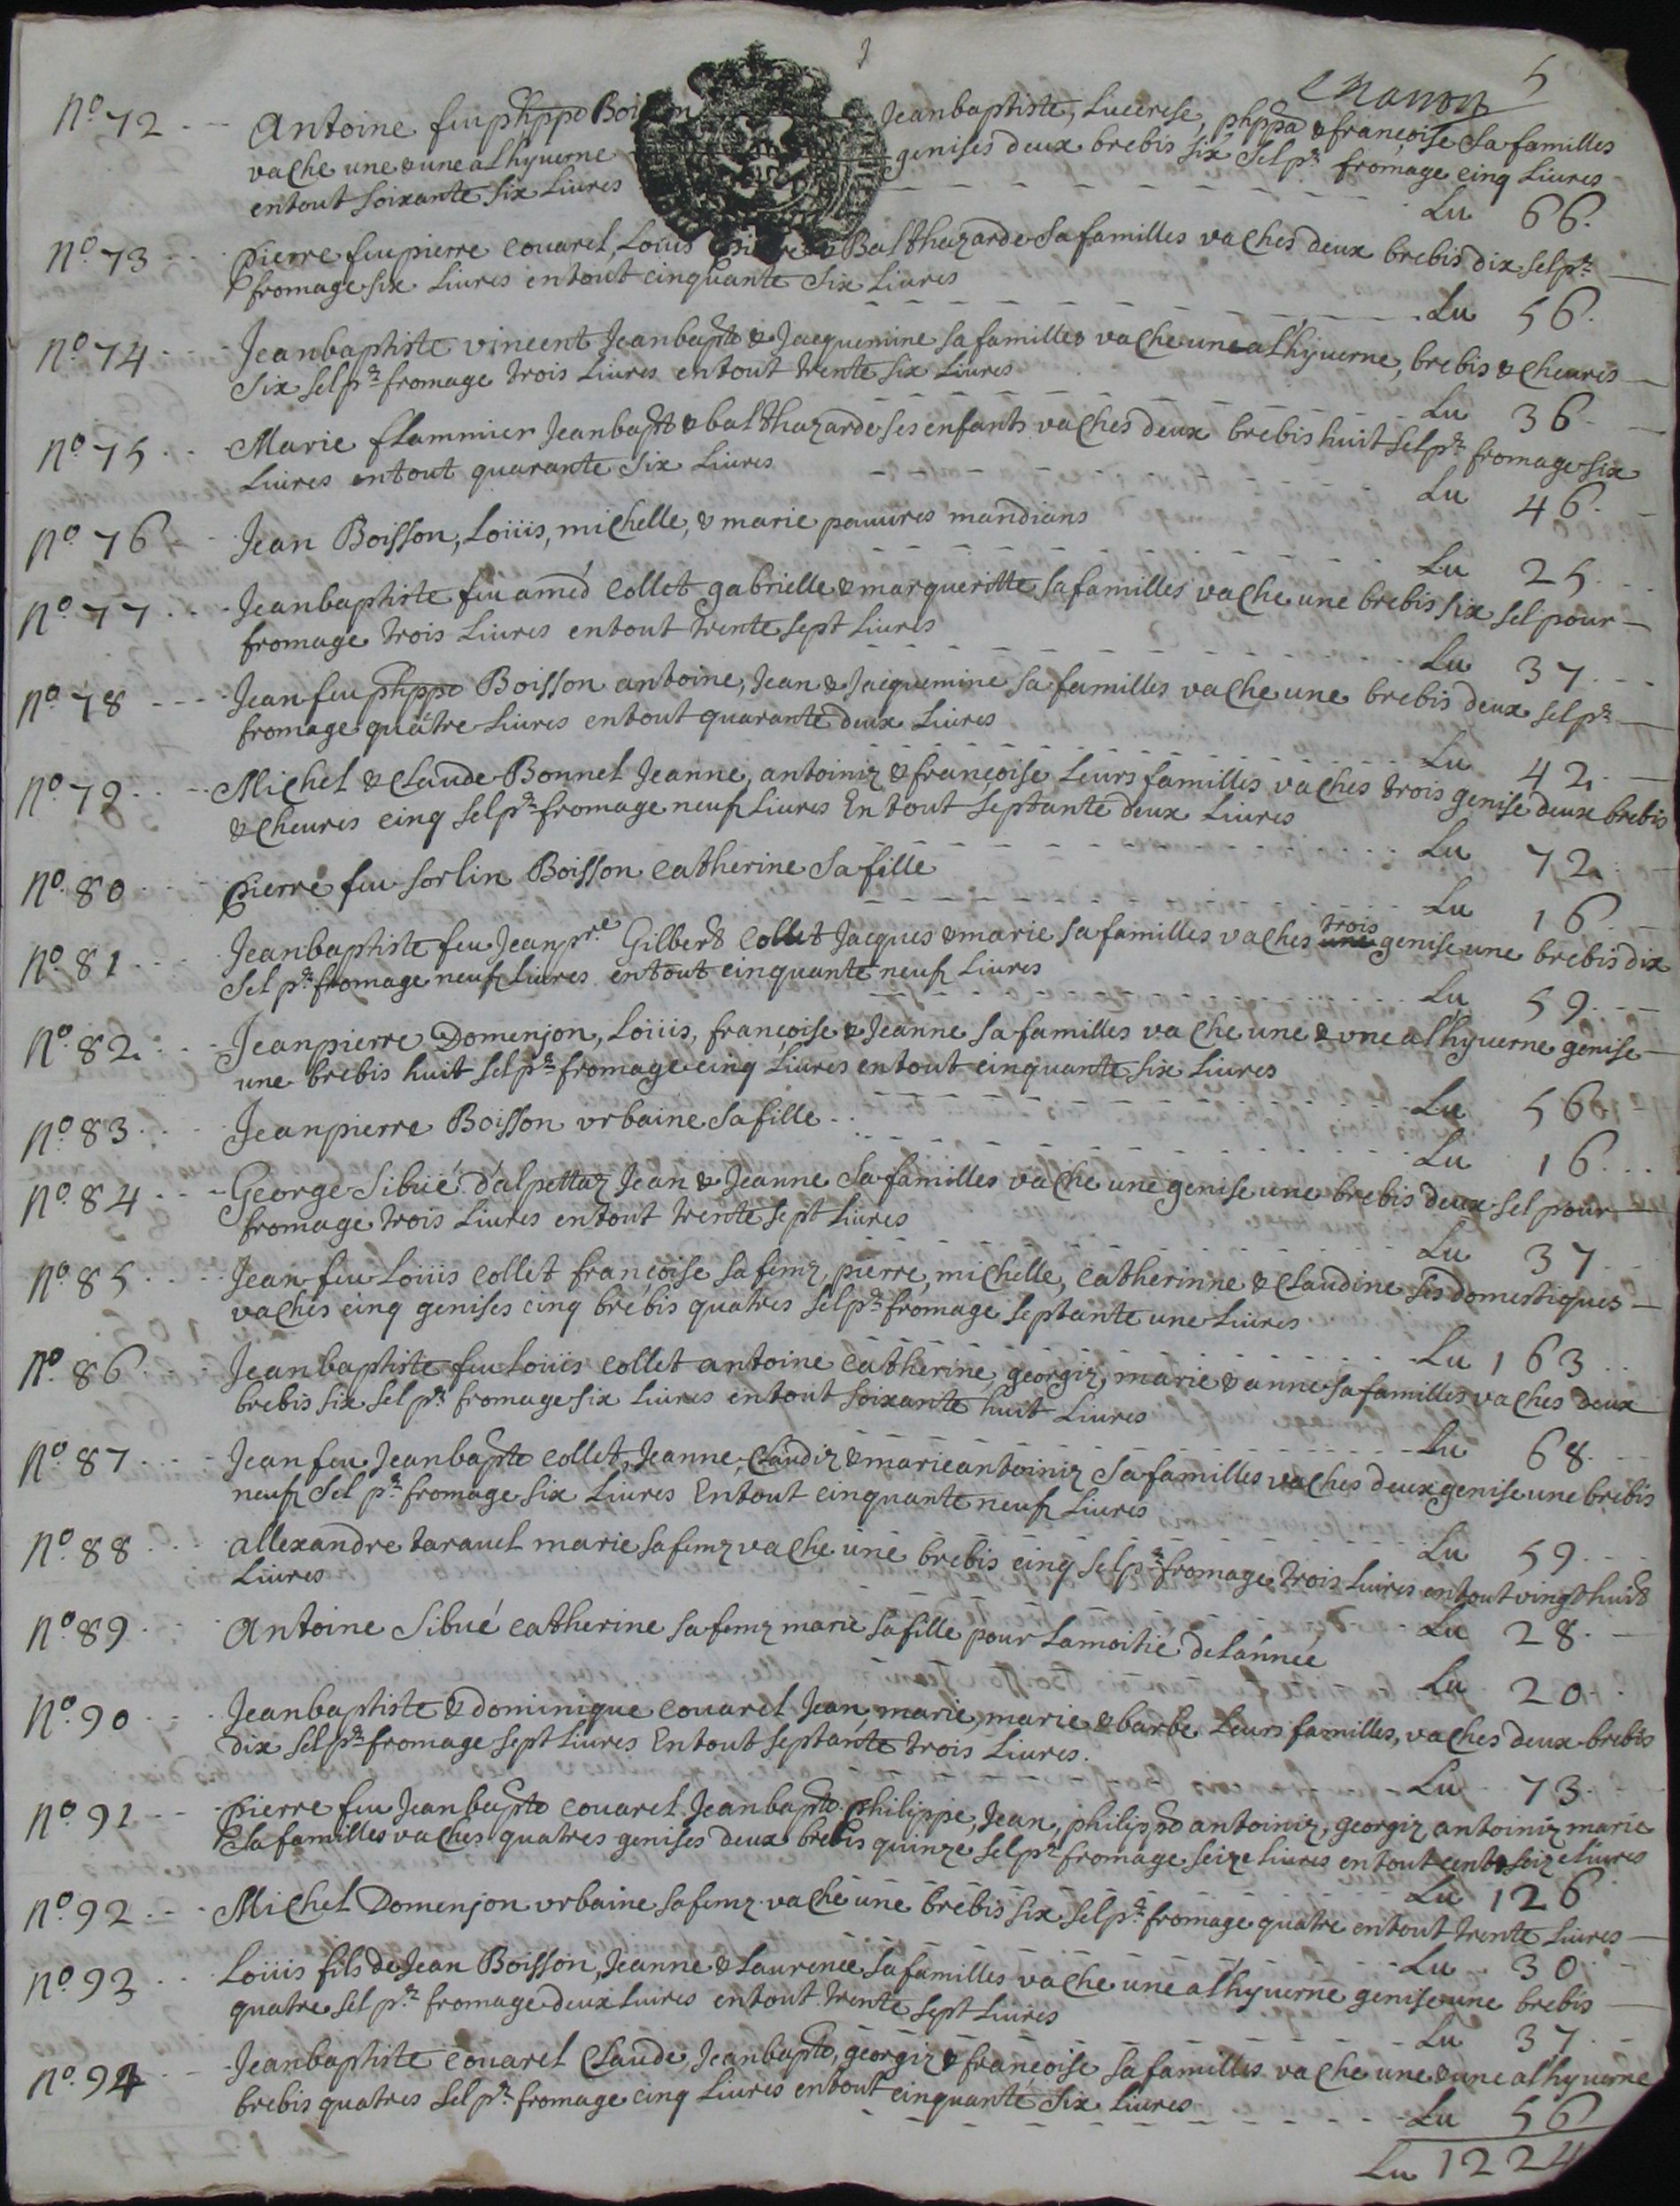 5
N.º 72 Antoine feu phppe Boisson Jeanbaptiste, Lucrese, phppa & françoise Sa familles
vache une & une a Lhyuerne genises deux brebis six Sel p.r fromage cinq Liures
entout soixante six Liures
Lu 66.
N.º 73 Pierre feu pierre couarel, Loüis & Balthazarde Sa familles vaches deux brebis dix sel p.r
fromage six Liures entout cinquante Six Liures
Lu 56.
N.º 74 Jeanbaptiste vincent Jeanbapte & Jacquemine sa familles vache une a Lhyuerne, brebis & cheures
Six sel p.r fromage trois Liures entout trente six Liures
Lu 36.
N.º 75 Marie flammier Jeanbapte & balthazarde ses enfants vaches deux brebis huit Sel p.r fromage six
Liures entout quarante six Liures
Lu 46.
N.º 76 Jean Boisson, Loüis, michelle, & marie pauures mandians
Lu 25.
N.º 77 Jeanbaptiste feu amed collet gabrielle & margueritte sa familles vache une brebis six sel pour
fromage trois Liures entout trente sept Liures
Lu 37
N.º 78 Jean feu phppe Boisson antoine, Jean & Jacquemine sa familles vache une brebis deux sel p.r
fromage quatre Liures entout quarante deux Liures
Lu 42.
N.º 79 Michel & Claude Bonnel Jeanne, antoinaz & françoise Leurs familles vaches trois genise deux brebis
& cheures cinq Sel p.r fromage neuf Liures Entout septante deux Liures
Lu 72.
N.º 80 Pierre feu sorlin Boisson catherine Sa fille
Lu 16
N.º 81 Jeanbaptiste feu Jeanp.re Gilbert Collet Jacques & marie sa familles vaches une trois genise une brebis dix
Sel p.r fromage neuf Liures entout cinquante neuf Liures
Lu 59.
N.º 82 Jeanpierre Domenjon, Loüis, francoise & Jeanne sa familles vache une & vne a Lhyuerne genise
une brebis huit Sel p.r fromage cinq Liures entout cinquante six Liures
Lu 56
N.º 83 Jeanpierre Boisson vrbaine Sa fille
Lu 16
N.º 84 George Sibué d'alpettaz Jean & Jeanne Sa familles vache une genise une brebis deux sel pour
fromage trois Liures entout trente sept Liures
Lu 37
N.º 85 Jean feu Loüis collet françoise sa femz, pierre, michelle, catherinne & Claudine ses domestiques
vaches cinq genises cinq brebis quatres Sel p.r fromage septante une Liures
Lu 163
N.º 86 Jeanbaptiste feu Loüis collet antoine catherine, georgiz, marie & anne sa familles vaches deux
brebis six sel p.r fromage six Liures entout soixante huit Liures
Lu 68.
N.º 87 Jean feu Jeanbapte collet, Jeanne, Claudiz & marie antoiniz Sa familles vaches deux genise une brebis
neuf Sel p.r fromage six Liures Entout cinquante neuf Liures
Lu 59.
N.º 88 allexandre tarauel marie sa femz vache une brebis cinq Sel p.r fromage trois Liures entout vingt huit
Liures
Lu 28.
N.º 89 Antoine Sibué catherine sa femz marie sa fille pour Lamoitié de Lannée
Lu 20
N.º 90 Jeanbaptiste & dominique couarel Jean, marie, marie & barbe Leurs familles, vaches deux brebis
dix Sel p.r fromage sept Liures Entout septante trois Liures.
Lu 73.
N.º 91 Pierre feu Jeanbapte couarel Jeanbapte philippe, Jean, philippe antoiniz, georgiz antoiniz marie
Sa familles vaches quatres genises deux brebis quinze sel p.r fromage seize Liures entout cent & Liures
Lu 126
N.º 92 Michel Domenjon vrbaine sa femz vache une brebis six Sel p.r fromage quatre entout trente Liures
Lu 30
N.º 93 Loüis fils de Jean Boisson, Jeanne & Laurence sa familles vache une a Lhyuerne genise une brebis
quatre sel p.r fromage deux Liures entout trente sept Liures
Lu 37.
N.º 94 Jeanbaptiste couarel Claude, Jeanbapte, georgiz & françoise sa familles vache une & une a Lhyuerne
brebis quatres Sel p.r fromage cinq Liures entout cinquante Six Liures
Lu 56
Lu 1224